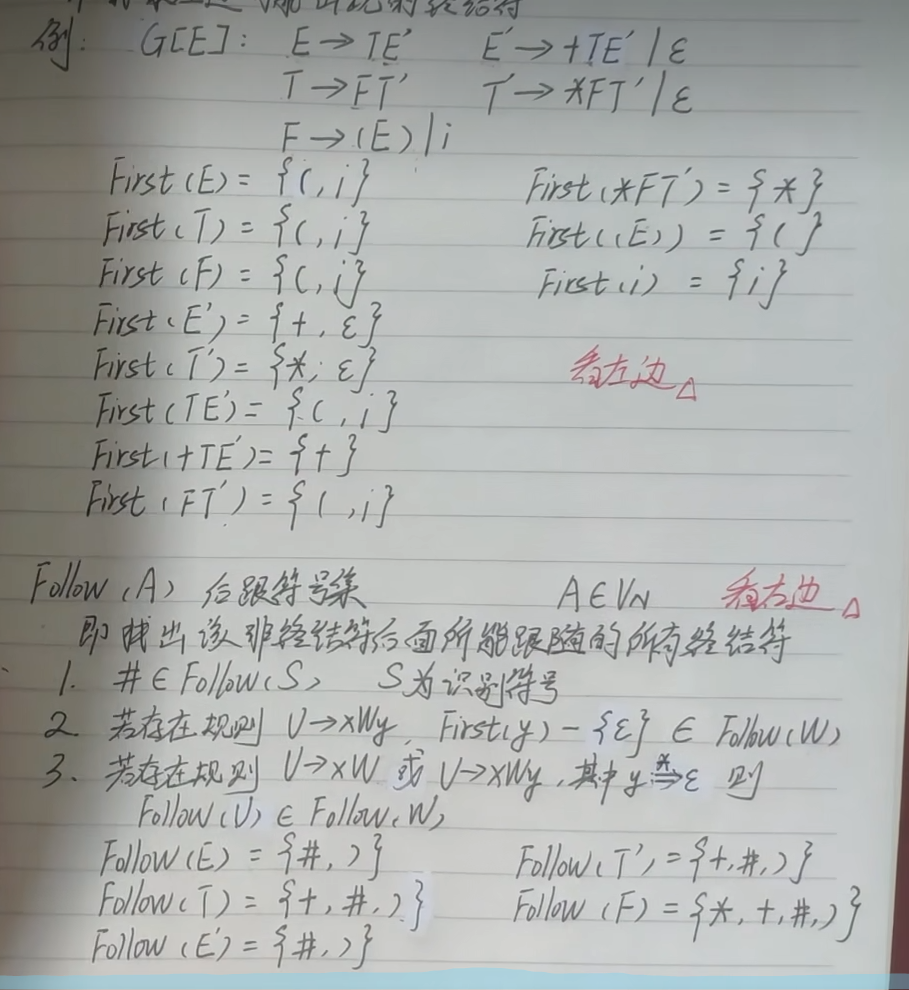 能出现的终结符
例: G[E]: E→TE' E'→+TE'|ε
T→FT' T'→*FT'|ε
F→(E)|i
First(E)={(,i} First(*FT')={*}
First(T)={(,i} First((E))={(}
First(F)={(,i} First(i)={i}
First(E')={+,ε}
First(T')={*,ε} 看左边△
First(TE')={(,i}
First(+TE')={+}
First(FT')={(,i}
Follow(A) 后跟符号集 A∈VN 看右边△
即找出该非终结符后面所能跟随的所有终结符
1. #∈Follow(S) S为识别符号
2. 若存在规则 U→xWy, First(y)-{ε}∈Follow(W)
3. 若存在规则 U→xW 或 U→xWy,其中y*⇒ε 则
Follow(U)∈Follow(W)
Follow(E)={#,)} Follow(T')={+,#,)}
Follow(T)={+,#,)} Follow(F)={*,+,#,)}
Follow(E')={#,)}